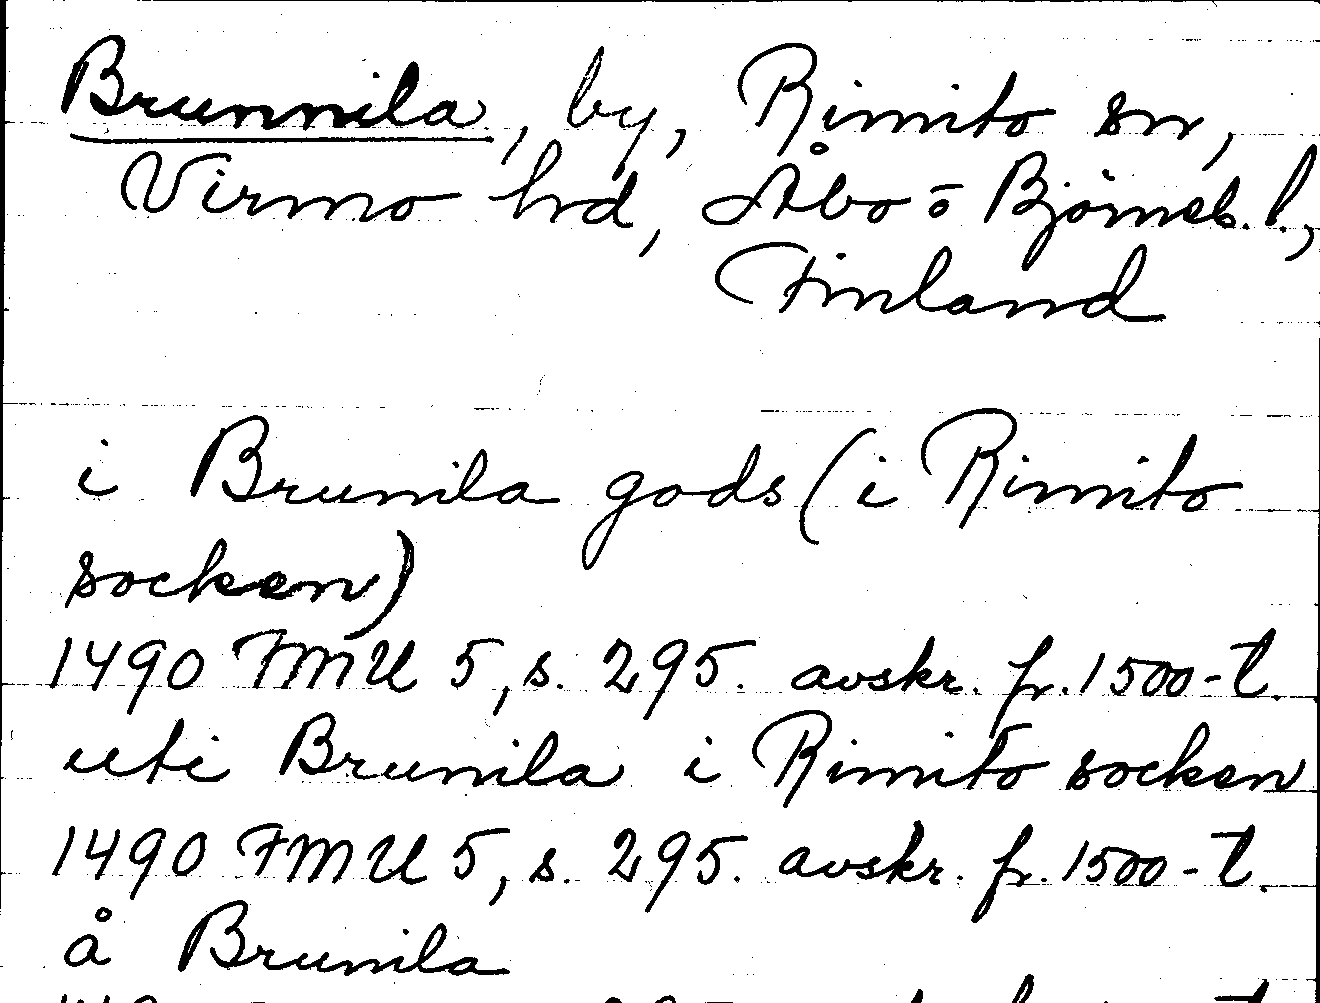 Brunnila, by, Rimito sn,
Virmo hd, Åbo o Björneb. l.,
Finland
i Brunila gods (i Rimito
socken)
1490 FMU 5, s. 295. avskr. fr. 1500-t.
uti Brunila i Rimito socken
1490 FMU 5, s. 295. avskr. fr. 1500-t.
å Brunila